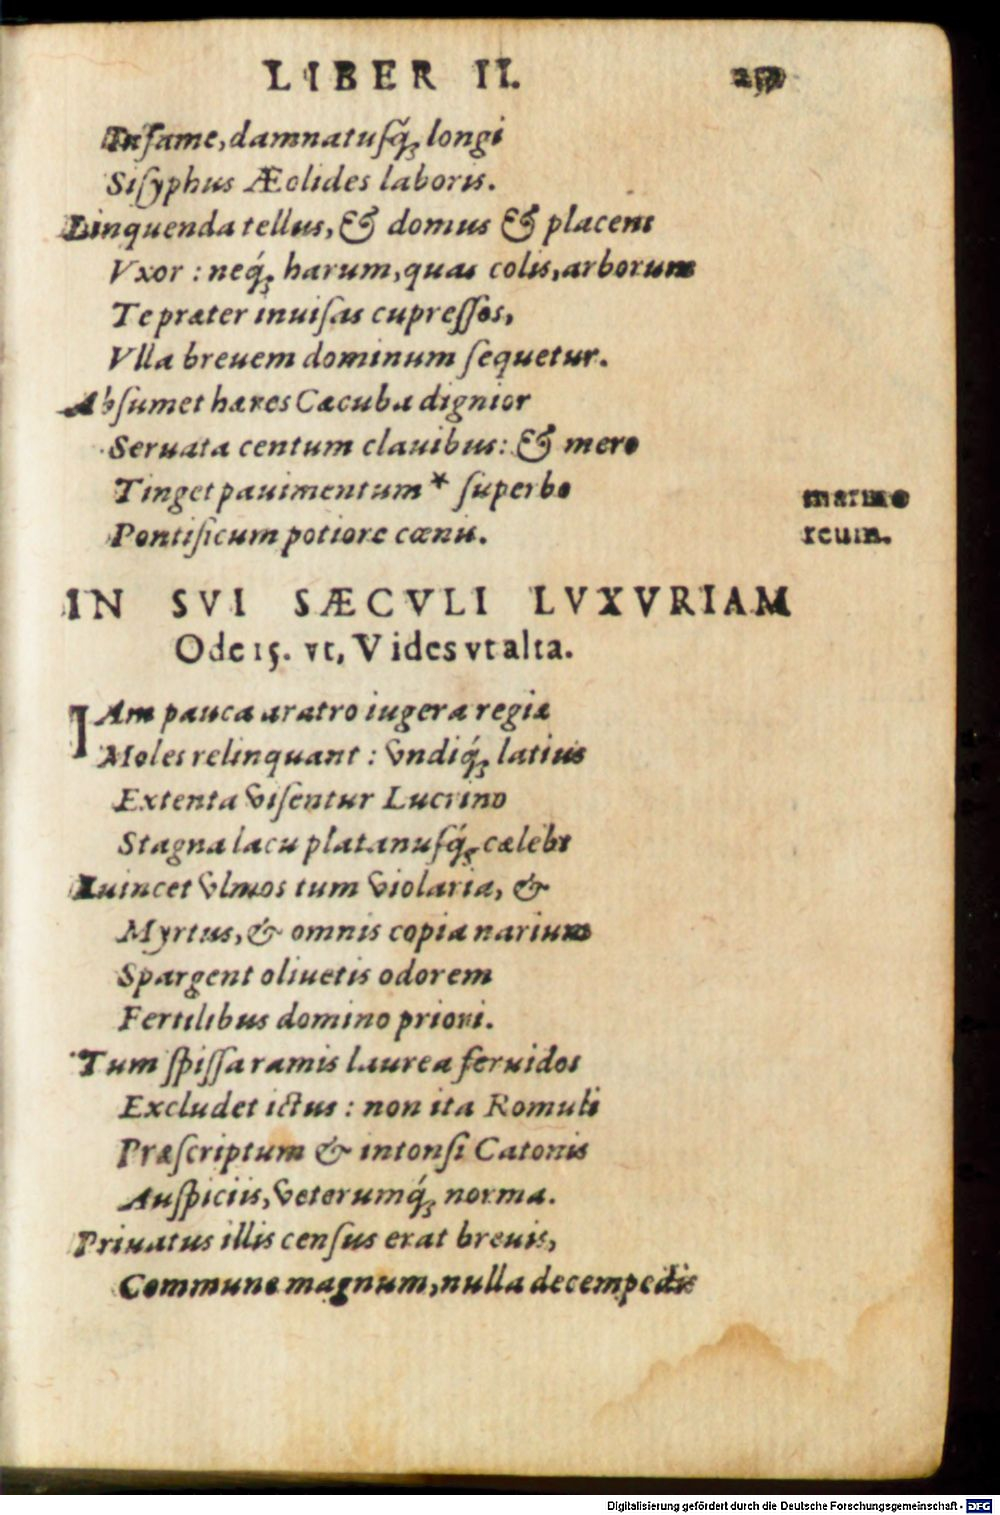 LIBER II.
Infame, damnatusq́; longi
Sisyphus Æolides laboris.
Linquenda tellus, & domus & placens
Vxor : neq́; harum, quas colis, arborum
Te præter inuisas cupressos,
Vlla breuem dominum sequetur.
Absumet hæres Cæcuba dignior
Seruata centum clauibus: & mero
Tinget pauimentum * superbo
marmo
Pontificum potiore cœnis.
reum.
IN SVI SÆCVLI LVXVRIAM
Ode 15. vt, Vides vt alta.
IAm pauca aratro iugera regiæ
Moles relinquant : vndiq́; latius
Extenta visentur Lucrino
Stagna lacu platanusq́; cælebs
Euincet vlmos tum violaria, &
Myrtus, & omnis copia narium
Spargent oliuetis odorem
Fertilibus domino priori.
Tum spissa ramis laurea feruidos
Excludet ictus : non ita Romuli
Præscriptum & intonsi Catonis
Auspiciis, veterumq́; norma.
Priuatus illis census erat breuis,
Commune magnum, nulla decempedis
Digitalisierung gefördert durch die Deutsche Forschungsgemeinschaft - DFG